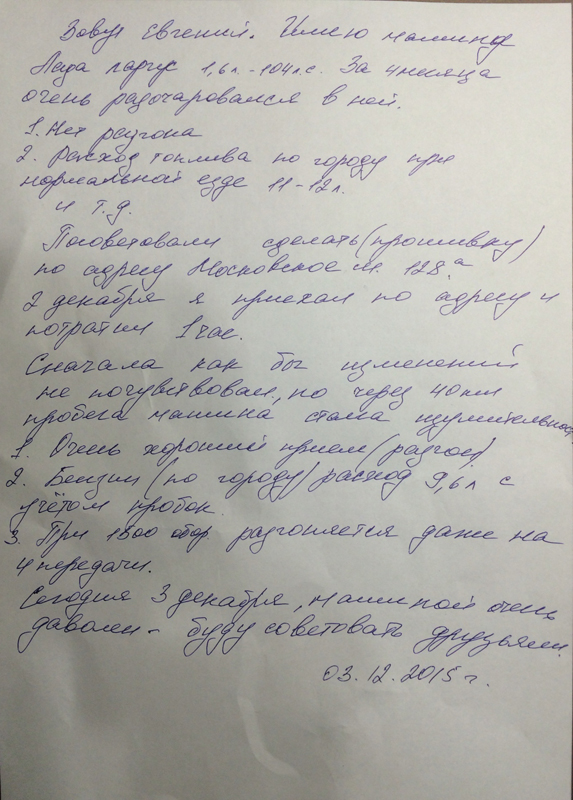 Зовут Евгений. Имею машину
Лада ларгус 1,6л.-104л.с. За 4 месяца
очень разочаровался в ней.
1. Нет разгона
2. Расход топлива по городу при
нормальной езде 11-12л.
и т.д.
Посоветовали сделать (прошивку)
по адресу Московское ш. 128а
2 декабря я приехал по адресу и
потратил 1 час.
Сначала как бы изменений
не почувствовал, но через 40км
пробега машина стала
1. Очень хороший прием (разгон)
2. Бензин (по городу) расход 9,6л с
учётом пробок.
3. При 1500 обор. разгоняется даже на
4 передачи.
Сегодня 3 декабря, машиной очень
даволен - буду советовать друзьям.
03.12.2015г.